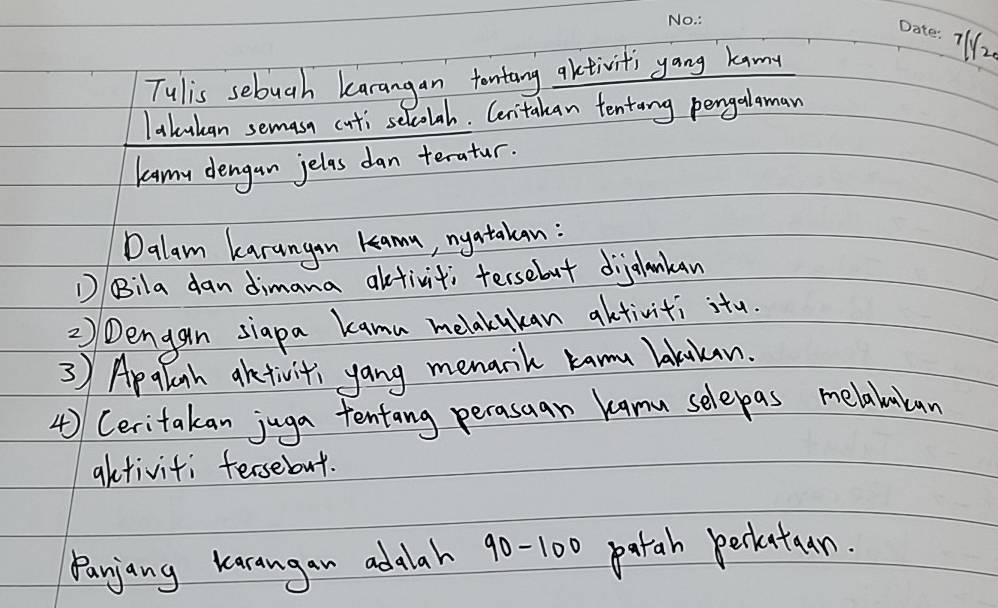 No.:
Date: 7/1/20
Tulis sebuah karangan tentang aktiviti yang kamu
lakukan semasa cuti sekolah. Ceritakan tentang pengalaman
kamu dengan jelas dan teratur.
Dalam karangan kamu, nyatakan:
1) Bila dan dimana aktiviti tersebut dijalankan
2) Dengan siapa kamu melakukan aktiviti itu.
3) Apakah aktiviti yang menarik kamu lakukan.
4) Ceritakan juga tentang perasaan kamu selepas melakukan
aktiviti tersebut.
Panjang karangan adalah 90-100 patah perkataan.